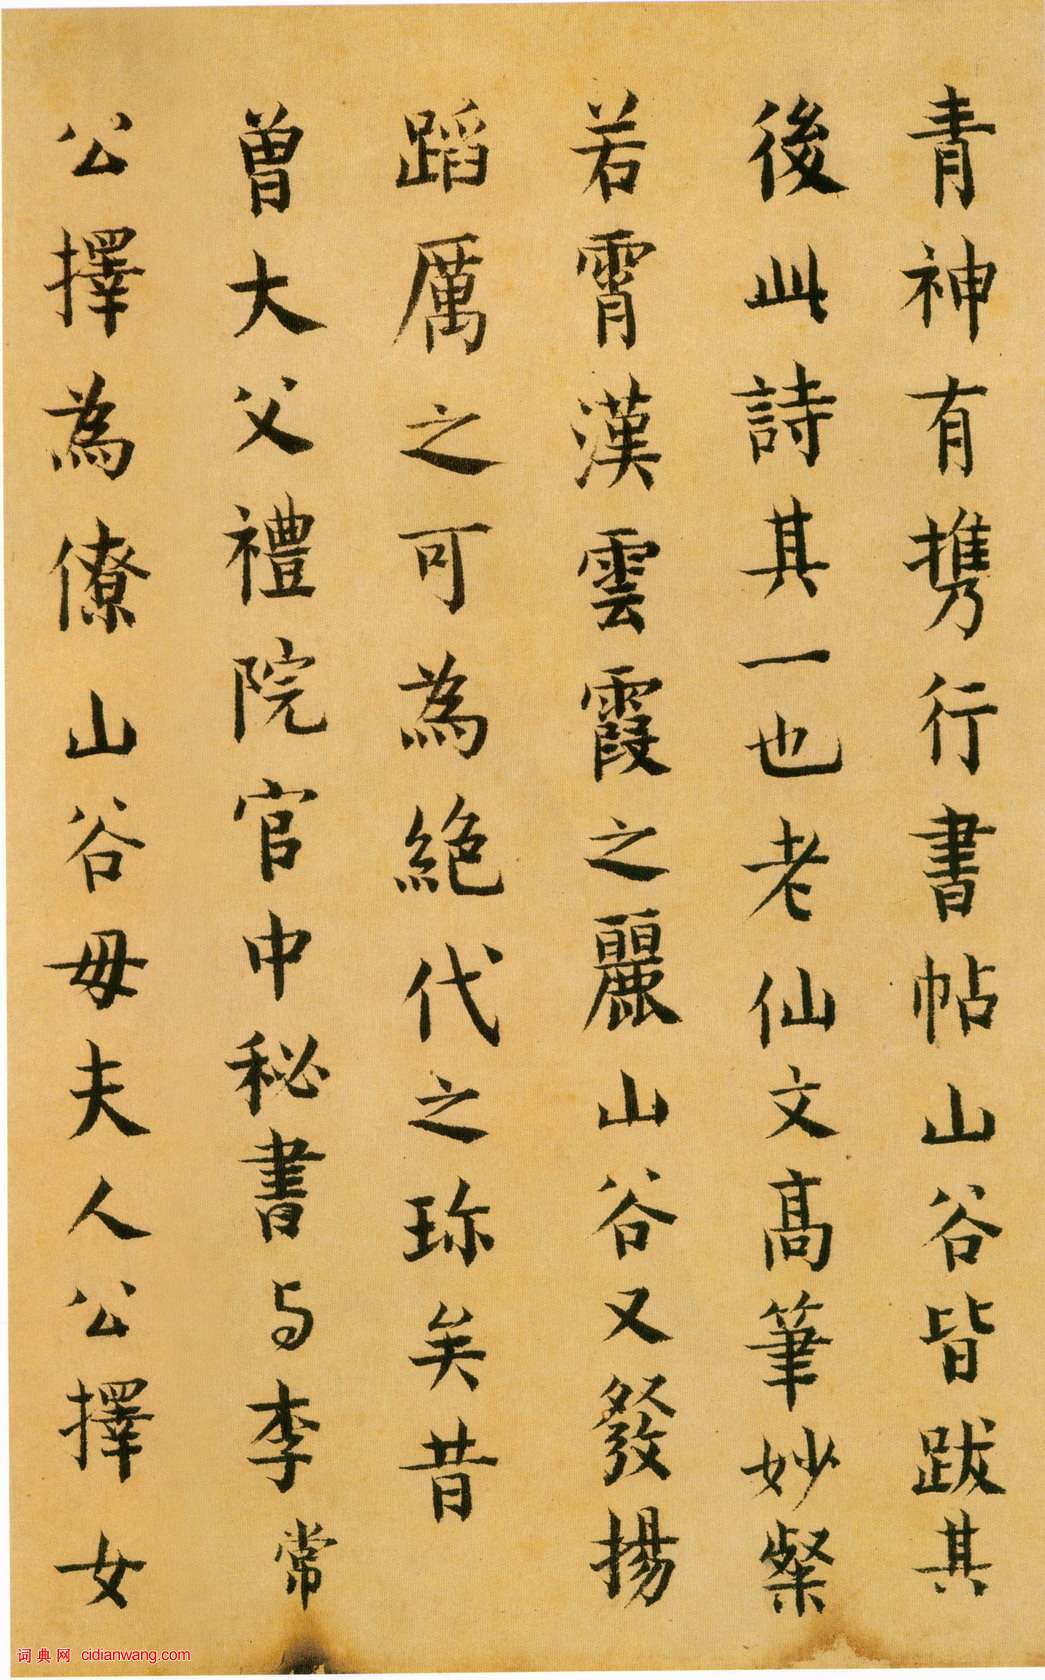 青神有携行書帖山谷皆跋其
後此詩其一也老仙文高筆妙粲
若霄漢雲霞之麗山谷又發揚
蹈厲之可為絕代之珎矣昔
曾大父禮院官中秘書与李常
公擇為僚山谷母夫人公擇女
词典网 cidianwang.com